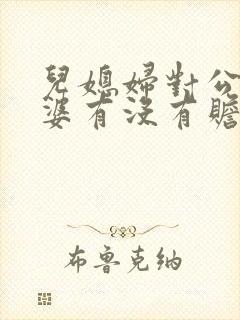 兒媳婦對公
婆有沒有贍
布魯克納